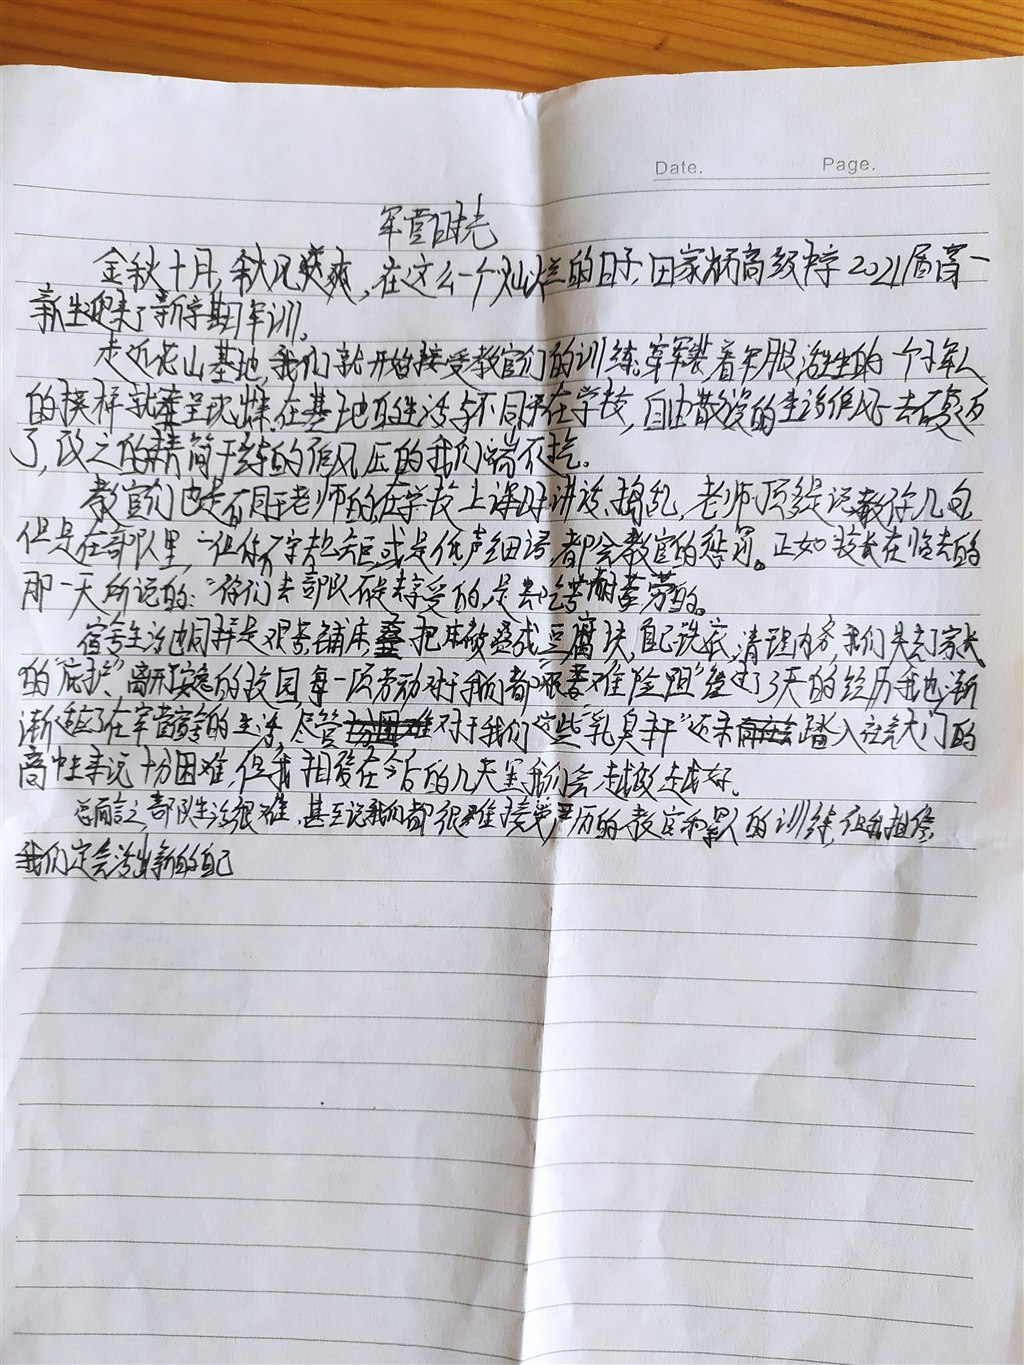 Date. Page.
军营时光
金秋十月,秋风飒爽,在这么一个灿烂的日子,田家炳高级中学2021届高一
新生迎来了新学期军训。
走近花山基地,我们就开始接受教官们的训练,军装着军服,活生生的一个军人
的模样就呈现出来,在基地的生活与不同于在学校,自由散漫的生活作风一去不复返
了,改之的精简干练的作风压的我们喘不过气。
教官们也是不同于老师的,在学校上课时讲话、捣乱,老师顶多是说教你几句
但是在部队里,一但你不守规矩,或是低声细语,都会教官的惩罚。正如校长在临去的
那一天所说的:“你们去部队不是去享受的,是去吃苦耐劳的。
宿舍生活也同样是艰苦,铺床把床被叠成豆腐块,自己洗衣,清理内务,我们失去了家长
的“庇护”,离开安逸的校园,每一项劳动对于我们都“艰难险阻”经过了3天的经历,我也渐
渐适应了在军营宿舍的生活,尽管对于我们这些“乳臭未干”还未踏入社会大门的
高中生来说十分困难,但我相信在今后的几天里我们会越改越好。
总而言之,部队生活很难,甚至说我们都很难接受严厉的教官和累人的训练,但我相信,
我们定会活出新的自己